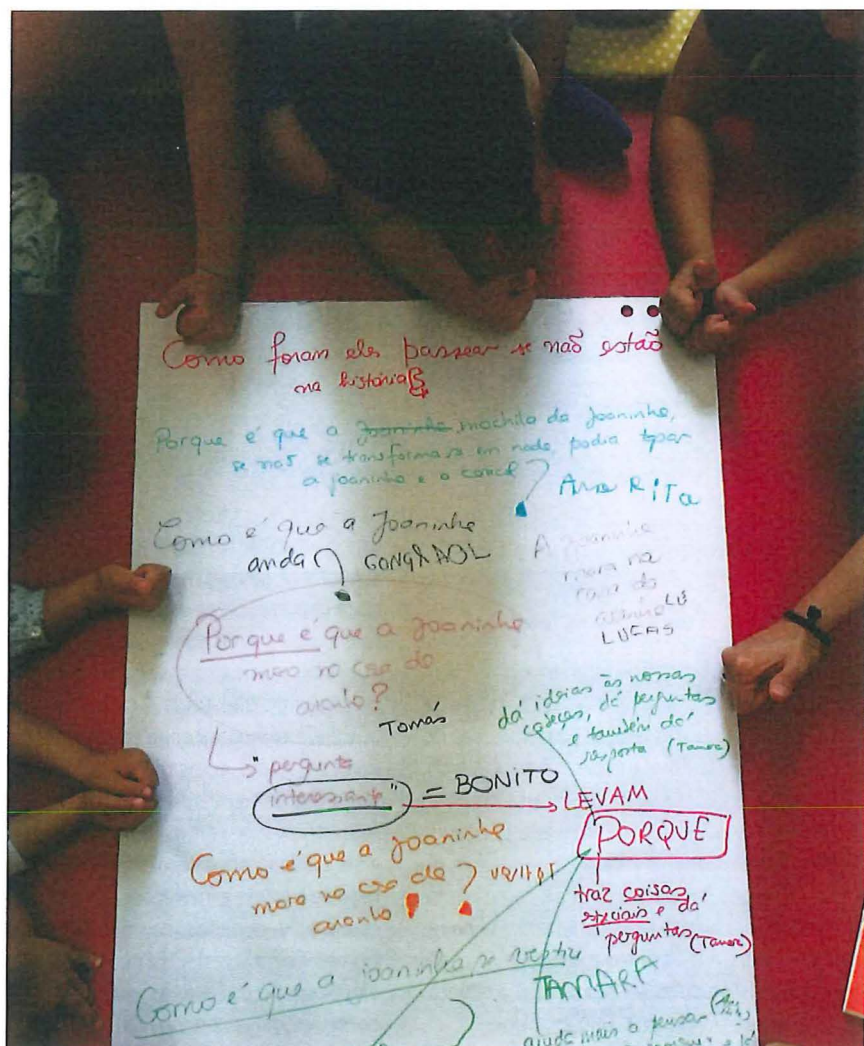 Como foram eles passear se não estão
na história?
Porque é que a Joaninha mochila da Joaninha,
se não se transformasse em nada, podia tapar
a joaninha e o caracol?
ANA RITA
Como é que a Joaninha
anda?
A Joaninha
mora na
casa do
LU
LUCAS
Porque é que a Joaninha
mora no
?
TOMÁS
dá ideias às nossas
cabeças, dá perguntas
e também dá
resposta
"pergunta
interessante" = BONITO
LEVAM
PORQUE
Como é que a Joaninha
mora na
?
traz coisas
especiais e dá
perguntas
Como é que a joaninha se vestiu
TAMARA
ajuda mais a pensar